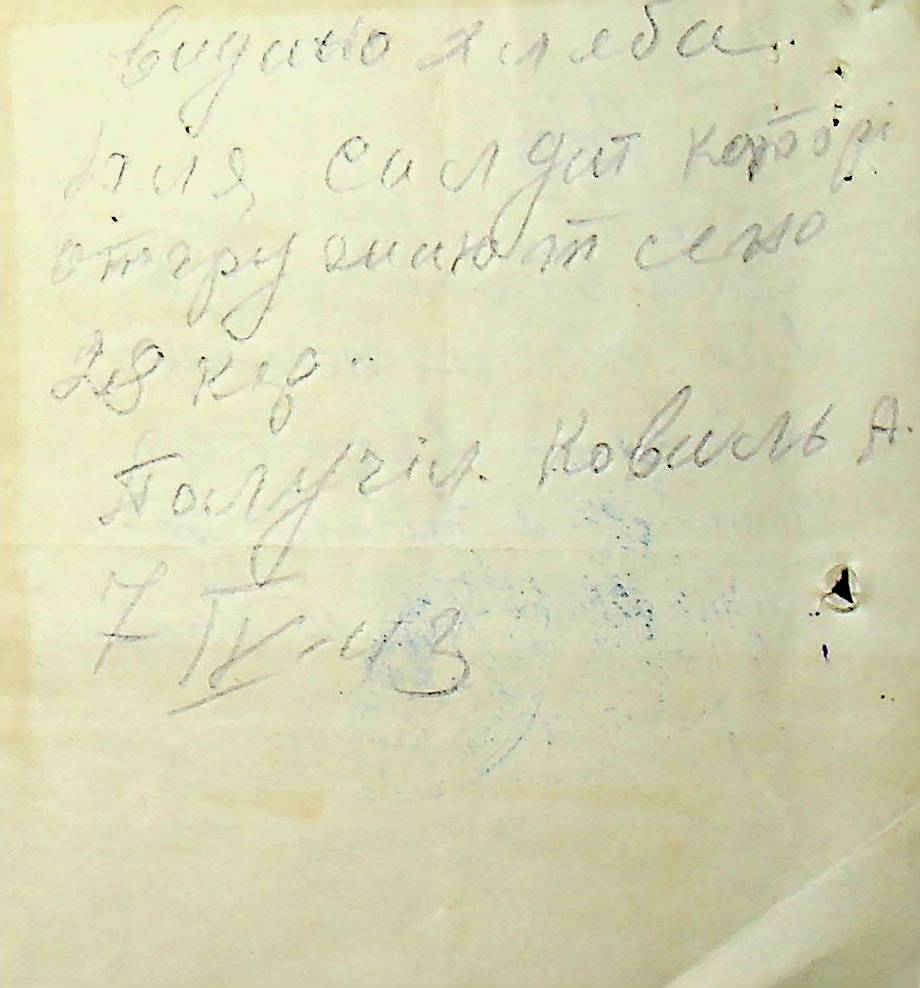 видано хляба
для салдат каторі
отгружают сено
28 кг
Палучіл. Коваль А.
7 IV-43